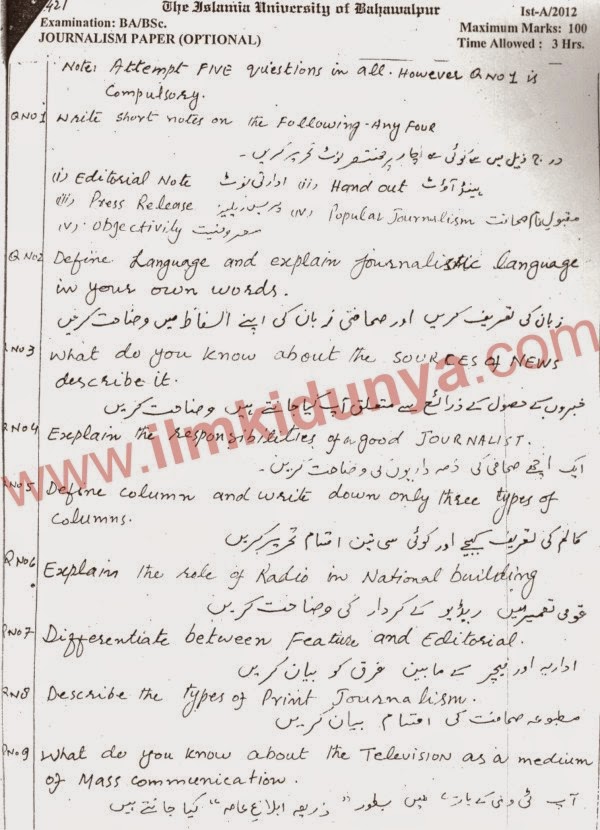 421
The Islamia University of Bahawalpur
Ist-A/2012
Examination: BA/BSc.
Maximum Marks: 100
JOURNALISM PAPER (OPTIONAL)
Time Allowed : 3 Hrs.
Note: Attempt FIVE questions in all. However Q NO 1 is
Compulsory.
Q NO 1 Write short notes on the Following - Any Four
درج ذیل میں سے کوئی سے چار پر مختصر نوٹ تحریر کریں۔
(i) Editorial Note ادارتی نوٹ (ii) Hand out ہینڈ آؤٹ
(iii) Press Release پریس ریلیز (iv) Popular Journalism مقبول عام صحافت
(v) Objectivity معروضیت
Q NO 2 Define Language and explain journalistic language
in your own words.
زبان کی تعریف کریں اور صحافتی زبان کی اپنے الفاظ میں وضاحت کریں
Q NO 3 What do you know about the SOURCES of NEWS
describe it.
خبروں کے حصول کے ذرائع سے متعلق آپ کیا جانتے ہیں وضاحت کریں
Q NO 4 Explain the responsibilities of a good JOURNALIST.
ایک اچھے صحافی کی ذمہ داریوں کی وضاحت کریں۔
Q NO 5 Define column and write down only three types of
columns.
کالم کی تعریف کیجیے اور کوئی سی تین اقسام تحریر کریں
Q NO 6 Explain the role of Radio in National building
قومی تعمیر میں ریڈیو کے کردار کی وضاحت کریں
Q NO 7 Differentiate between Feature and Editorial.
اداریہ اور فیچر کے مابین فرق کو بیان کریں
Q NO 8 Describe the types of Print Journalism.
مطبوعہ صحافت کی اقسام بیان کریں
Q NO 9 What do you know about the Television as a medium
of Mass communication.
آپ ٹی وی کے بارے میں بطور "ذریعہ ابلاغ عامہ" کیا جانتے ہیں
www.ilmkidunya.com